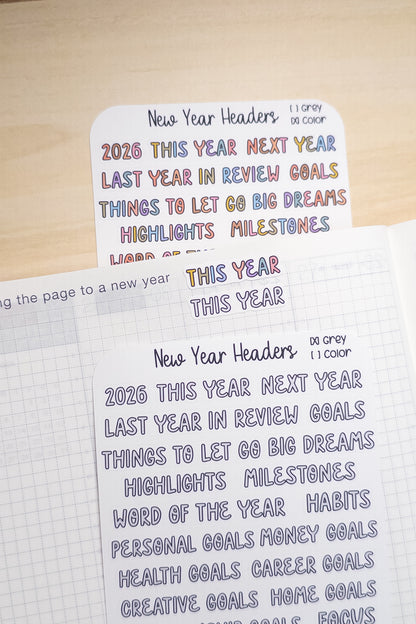 New Year Headers
[ ] Grey
[x] Color
2026 THIS YEAR NEXT YEAR
LAST YEAR IN REVIEW GOALS
THINGS TO LET GO BIG DREAMS
HIGHLIGHTS MILESTONES
WORD OF THE
ng the page to a new year
THIS YEAR
THIS YEAR
New Year Headers
[x] Grey
[ ] Color
2026 THIS YEAR NEXT YEAR
LAST YEAR IN REVIEW GOALS
THINGS TO LET GO BIG DREAMS
HIGHLIGHTS MILESTONES
WORD OF THE YEAR HABITS
PERSONAL GOALS MONEY GOALS
HEALTH GOALS CAREER GOALS
CREATIVE GOALS HOME GOALS
GOALS FOCUS